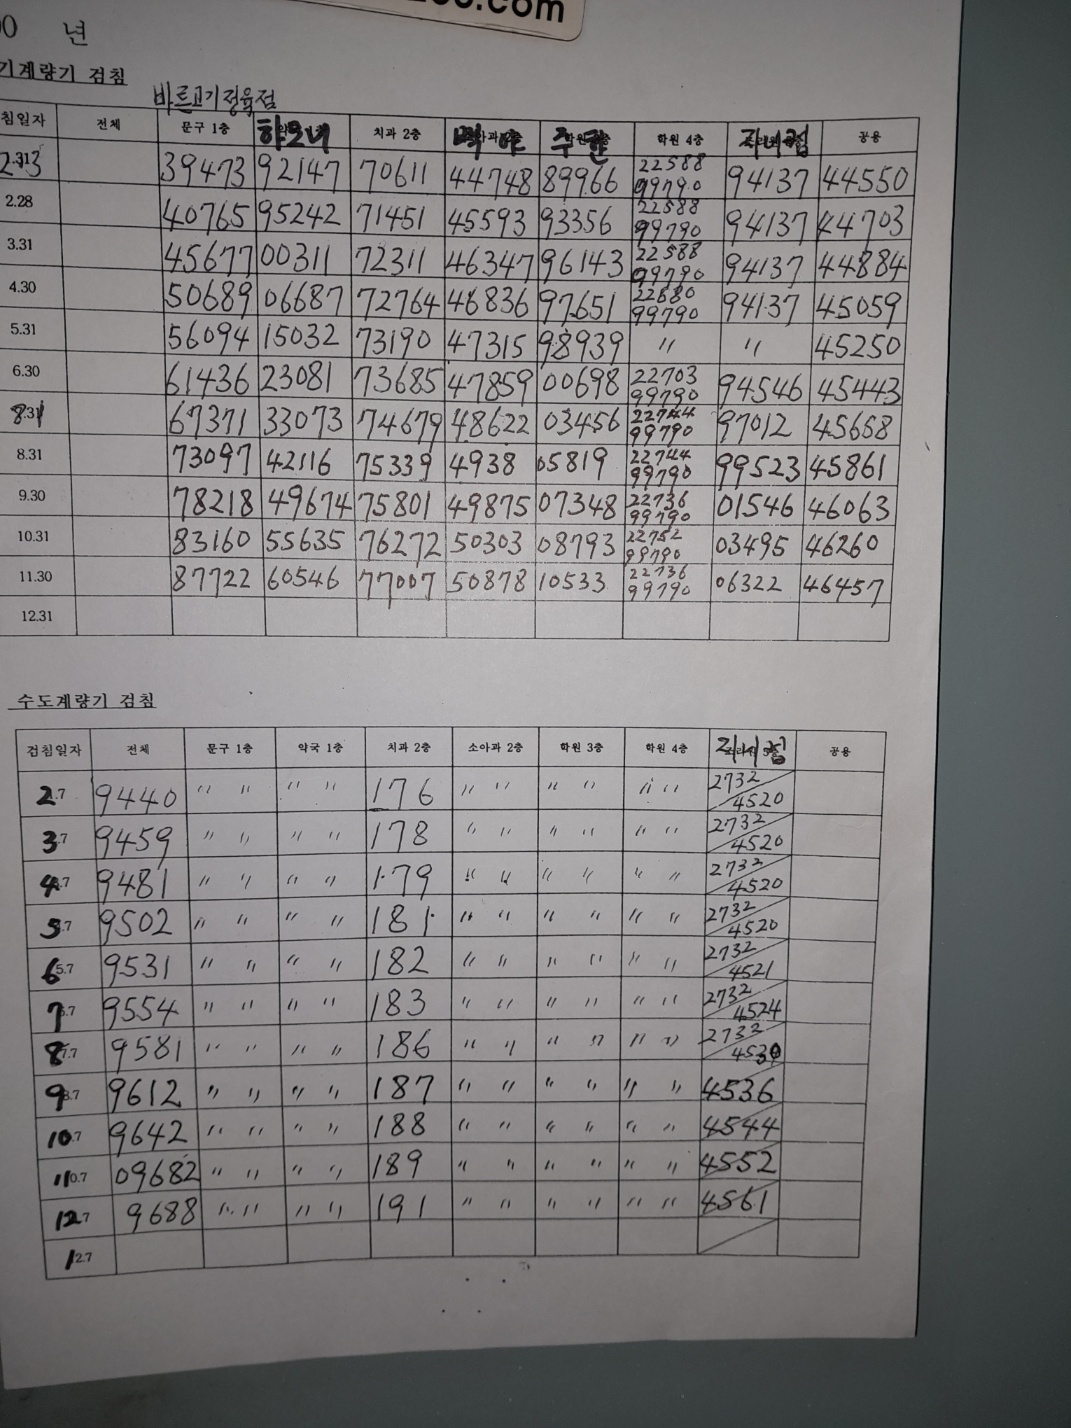 .com
00 년
기계량기 검침
바른고기정육점
침일자 전체 문구 1층 치과 2층 학원 4층 공용
39473 92147 70611 44748 89966 22588 99790 94137 44550
2.28 40765 95242 71451 45593 93356 22588 99790 94137 44703
3.31 45677 00311 72311 46347 96143 22588 99790 94137 44884
4.30 50689 06687 72764 46836 97651 22680 99790 94137 45059
5.31 56094 15032 73190 47315 98939 〃 〃 45250
6.30 61436 23081 73685 47859 00698 22703 99790 94546 45443
67371 33073 74679 48622 03456 22744 99790 97012 45658
8.31 73097 42116 75339 4938 05819 22744 99790 99523 45861
9.30 78218 49674 75801 49875 07348 22736 99790 01546 46063
10.31 83160 55635 76272 50303 08793 22752 99790 03495 46260
11.30 87722 60546 77007 50878 10533 22736 99790 06322 46457
12.31
수도계량기 검침
검침일자 전체 문구 1층 약국 1층 치과 2층 소아과 2층 학원 3층 학원 4층 공용
2.7 9440 〃 〃 〃 〃 176 〃 〃 〃 〃 〃 〃 2732/4520
3.7 9459 〃 〃 〃 〃 178 〃 〃 〃 〃 〃 〃 2732/4520
4.7 9481 〃 〃 〃 〃 179 〃 〃 〃 〃 〃 〃 2732/4520
5.7 9502 〃 〃 〃 〃 181 〃 〃 〃 〃 〃 〃 2732/4520
6.7 9531 〃 〃 〃 〃 182 〃 〃 〃 〃 〃 〃 2732/4521
7.7 9554 〃 〃 〃 〃 183 〃 〃 〃 〃 〃 〃 2732/4524
8.7 9581 〃 〃 〃 〃 186 〃 〃 〃 〃 〃 〃 2732/4530
9.7 9612 〃 〃 〃 〃 187 〃 〃 〃 〃 〃 〃 4536
10.7 9642 〃 〃 〃 〃 188 〃 〃 〃 〃 〃 〃 4544
11.7 09682 〃 〃 〃 〃 189 〃 〃 〃 〃 〃 〃 4552
12.7 9688 〃 〃 〃 〃 191 〃 〃 〃 〃 〃 〃 4561
12.7